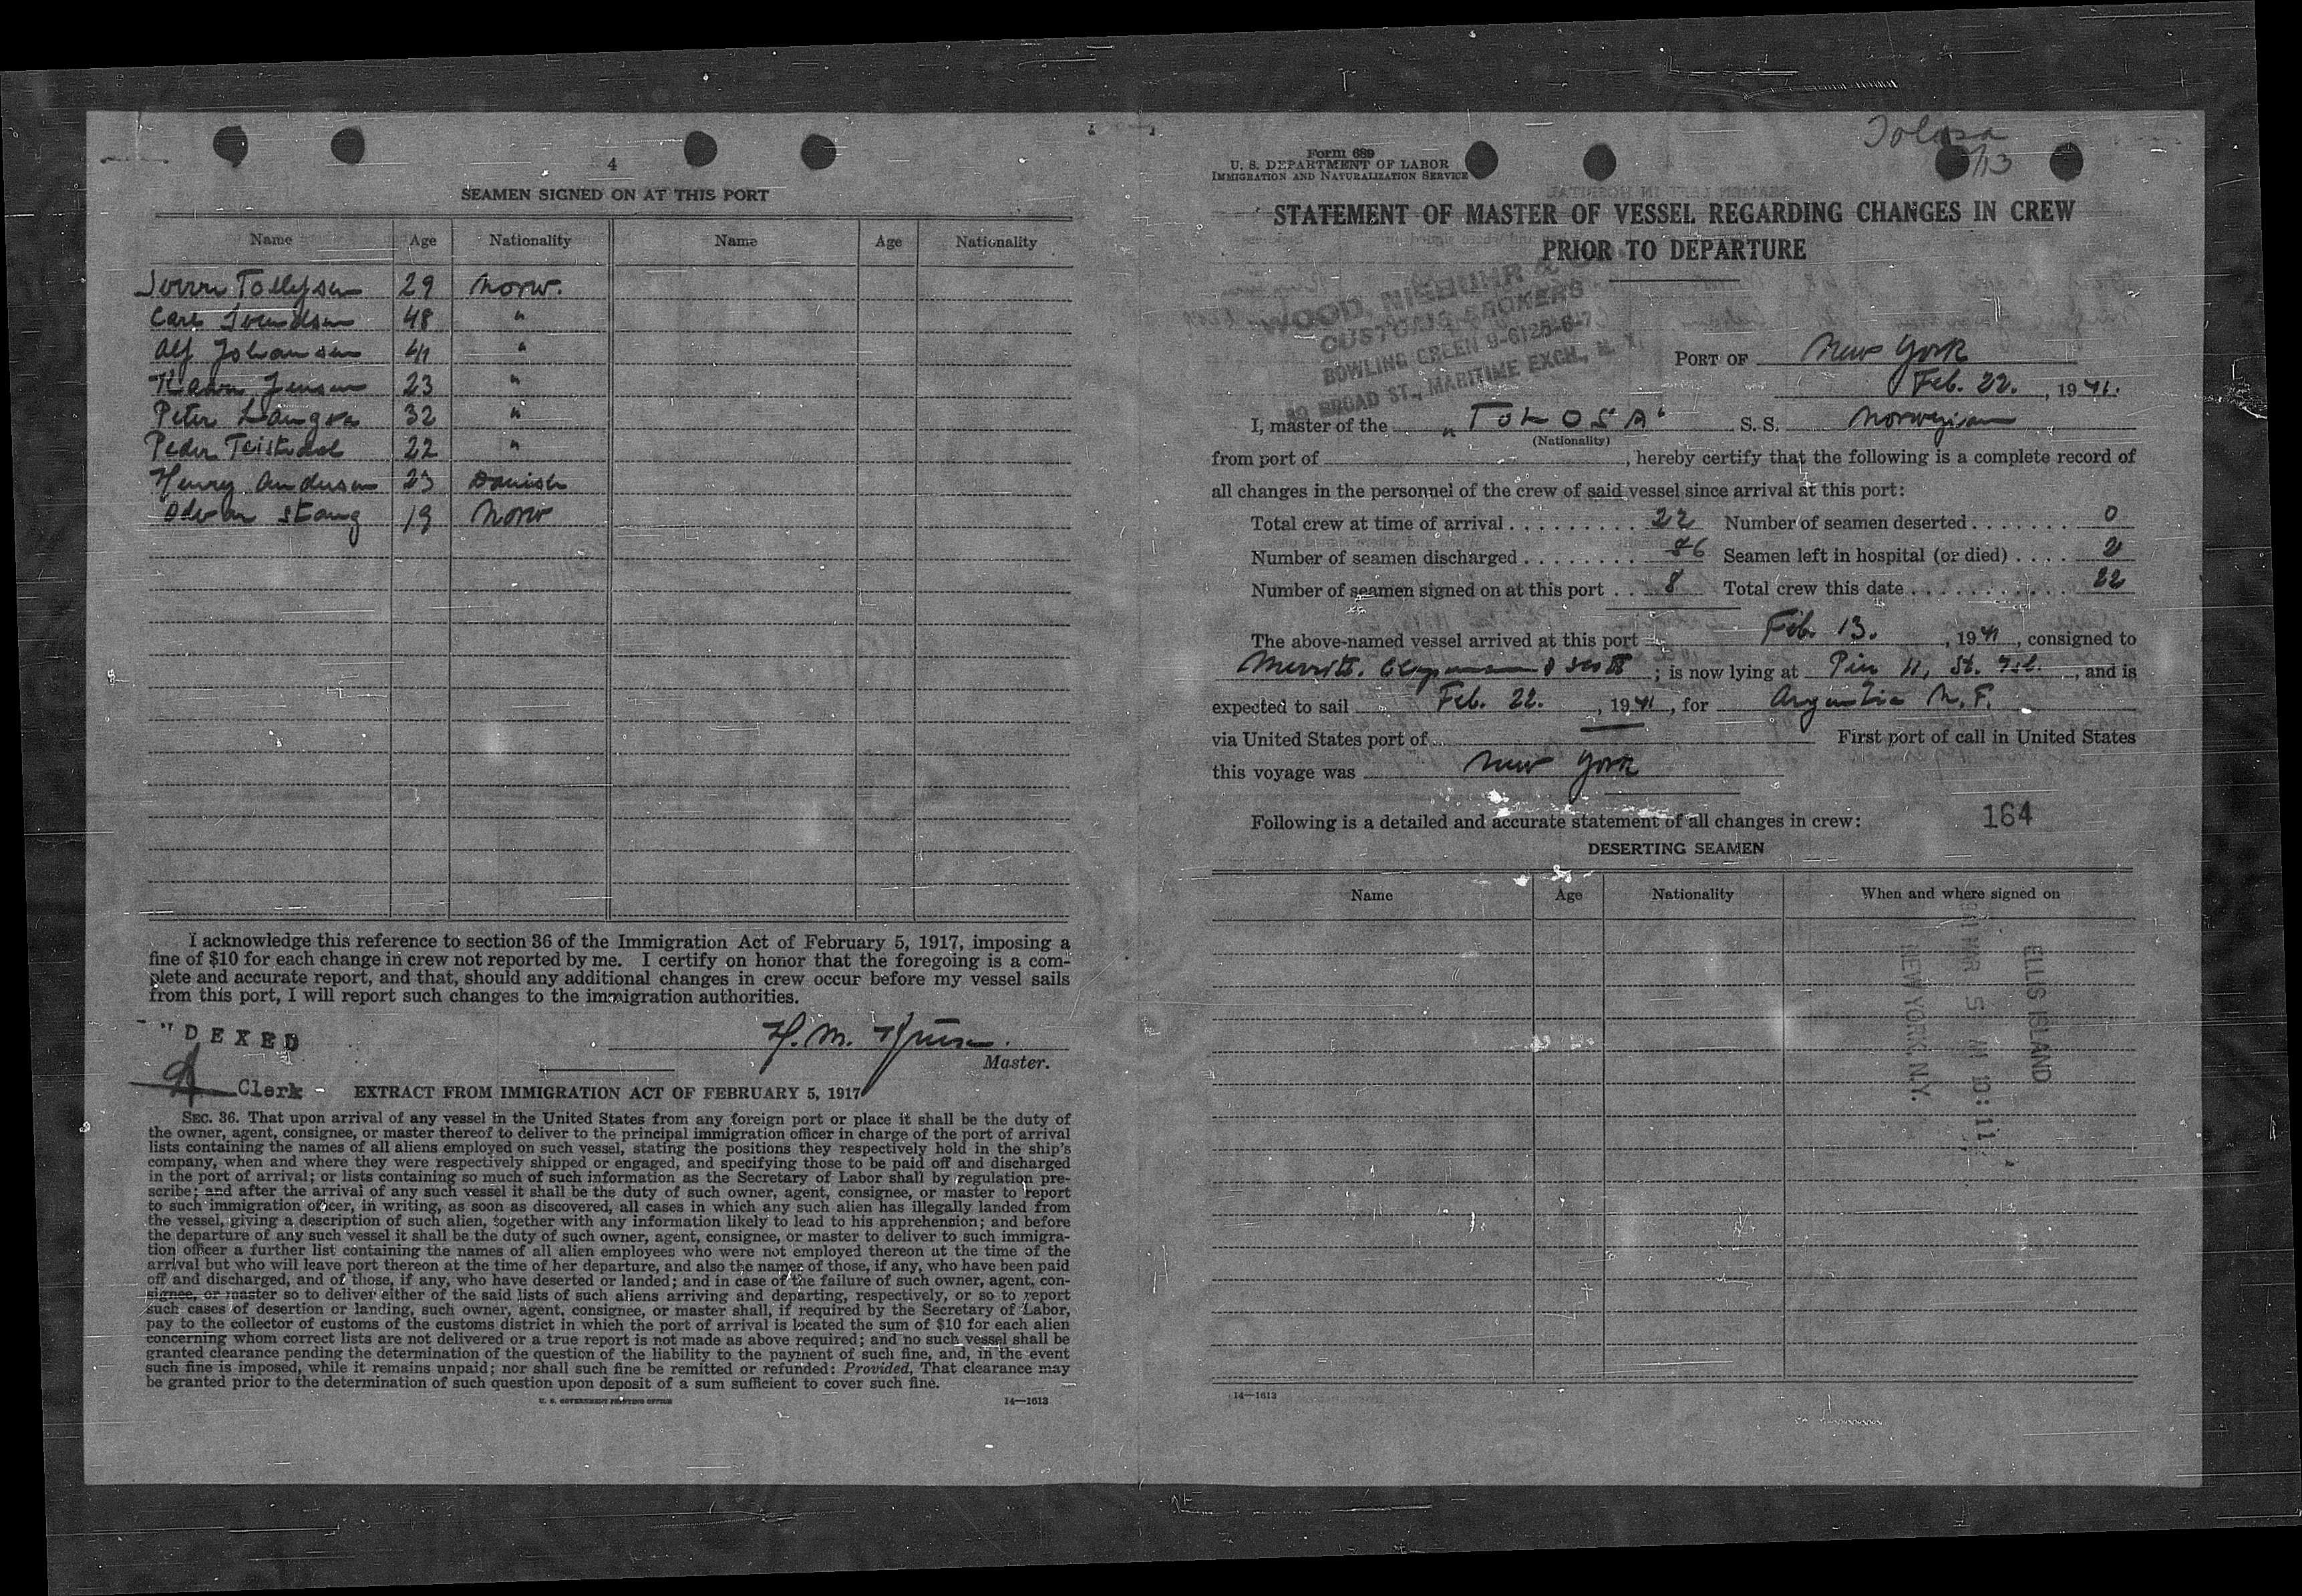 4
SEAMEN SIGNED ON AT THIS PORT
Name Age Nationality Name Age Nationality
29 Norw.
Carl Svendsen 48 "
Alf Johansen 41 "
Kaare Jensen 23 "
Peter 32 "
Peder 22 "
Henry Andersen 23 Danish
Stang 19 Norw
I acknowledge this reference to section 36 of the Immigration Act of February 5, 1917, imposing a
fine of $10 for each change in crew not reported by me. I certify on honor that the foregoing is a com-
plete and accurate report, and that, should any additional changes in crew occur before my vessel sails
from this port, I will report such changes to the immigration authorities.
"DEXED
H. M.
Master.
Clerk - EXTRACT FROM IMMIGRATION ACT OF FEBRUARY 5, 1917
SEC. 36. That upon arrival of any vessel in the United States from any foreign port or place it shall be the duty of
the owner, agent, consignee, or master thereof to deliver to the principal immigration officer in charge of the port of arrival
lists containing the names of all aliens employed on such vessel, stating the positions they respectively hold in the ship's
company, when and where they were respectively shipped or engaged, and specifying those to be paid off and discharged
in the port of arrival; or lists containing so much of such information as the Secretary of Labor shall by regulation pre-
scribe; and after the arrival of any such vessel it shall be the duty of such owner, agent, consignee, or master to report
to such immigration officer, in writing, as soon as discovered, all cases in which any such alien has illegally landed from
the vessel, giving a description of such alien, together with any information likely to lead to his apprehension; and before
the departure of any such vessel it shall be the duty of such owner, agent, consignee, or master to deliver to such immigra-
tion officer a further list containing the names of all alien employees who were not employed thereon at the time of the
arrival but who will leave port thereon at the time of her departure, and also the names of those, if any, who have been paid
off and discharged, and of those, if any, who have deserted or landed; and in case of the failure of such owner, agent, con-
signee, or master so to deliver either of the said lists of such aliens arriving and departing, respectively, or so to report
such cases of desertion or landing, such owner, agent, consignee, or master shall, if required by the Secretary of Labor,
pay to the collector of customs of the customs district in which the port of arrival is located the sum of $10 for each alien
concerning whom correct lists are not delivered or a true report is not made as above required; and no such vessel shall be
granted clearance pending the determination of the question of the liability to the payment of such fine, and, in the event
such fine is imposed, while it remains unpaid; nor shall such fine be remitted or refunded: Provided, That clearance may
be granted prior to the determination of such question upon deposit of a sum sufficient to cover such fine.
U. S. GOVERNMENT PRINTING OFFICE 14—1613
Tolosa
Form 689
U. S. DEPARTMENT OF LABOR
IMMIGRATION AND NATURALIZATION SERVICE
STATEMENT OF MASTER OF VESSEL REGARDING CHANGES IN CREW
PRIOR TO DEPARTURE
WOOD, NIEBUHR &
CUSTOMS BROKERS
BOWLING GREEN 9-6125-6-7
BROAD ST., MARITIME EXCH., N. Y.
PORT OF New York
Feb. 22. , 1941.
I, master of the "TOLOSA" S. S. Norwegian
(Nationality)
from port of , hereby certify that the following is a complete record of
all changes in the personnel of the crew of said vessel since arrival at this port:
Total crew at time of arrival 22 Number of seamen deserted 0
Number of seamen discharged 6 Seamen left in hospital (or died) 2
Number of seamen signed on at this port 8 Total crew this date 22
The above-named vessel arrived at this port Feb. 13. , 1941 , consigned to
Merritt. Chapman & Scott ; is now lying at Pier 11, St. , and is
expected to sail Feb. 22. , 1941 , for Argentia N. F.
via United States port of First port of call in United States
this voyage was New York
Following is a detailed and accurate statement of all changes in crew: 164
DESERTING SEAMEN
Name Age Nationality When and where signed on
ELLIS ISLAND
1941 MAR 5 AM 10:11
NEW YORK, N.Y.
14—1613